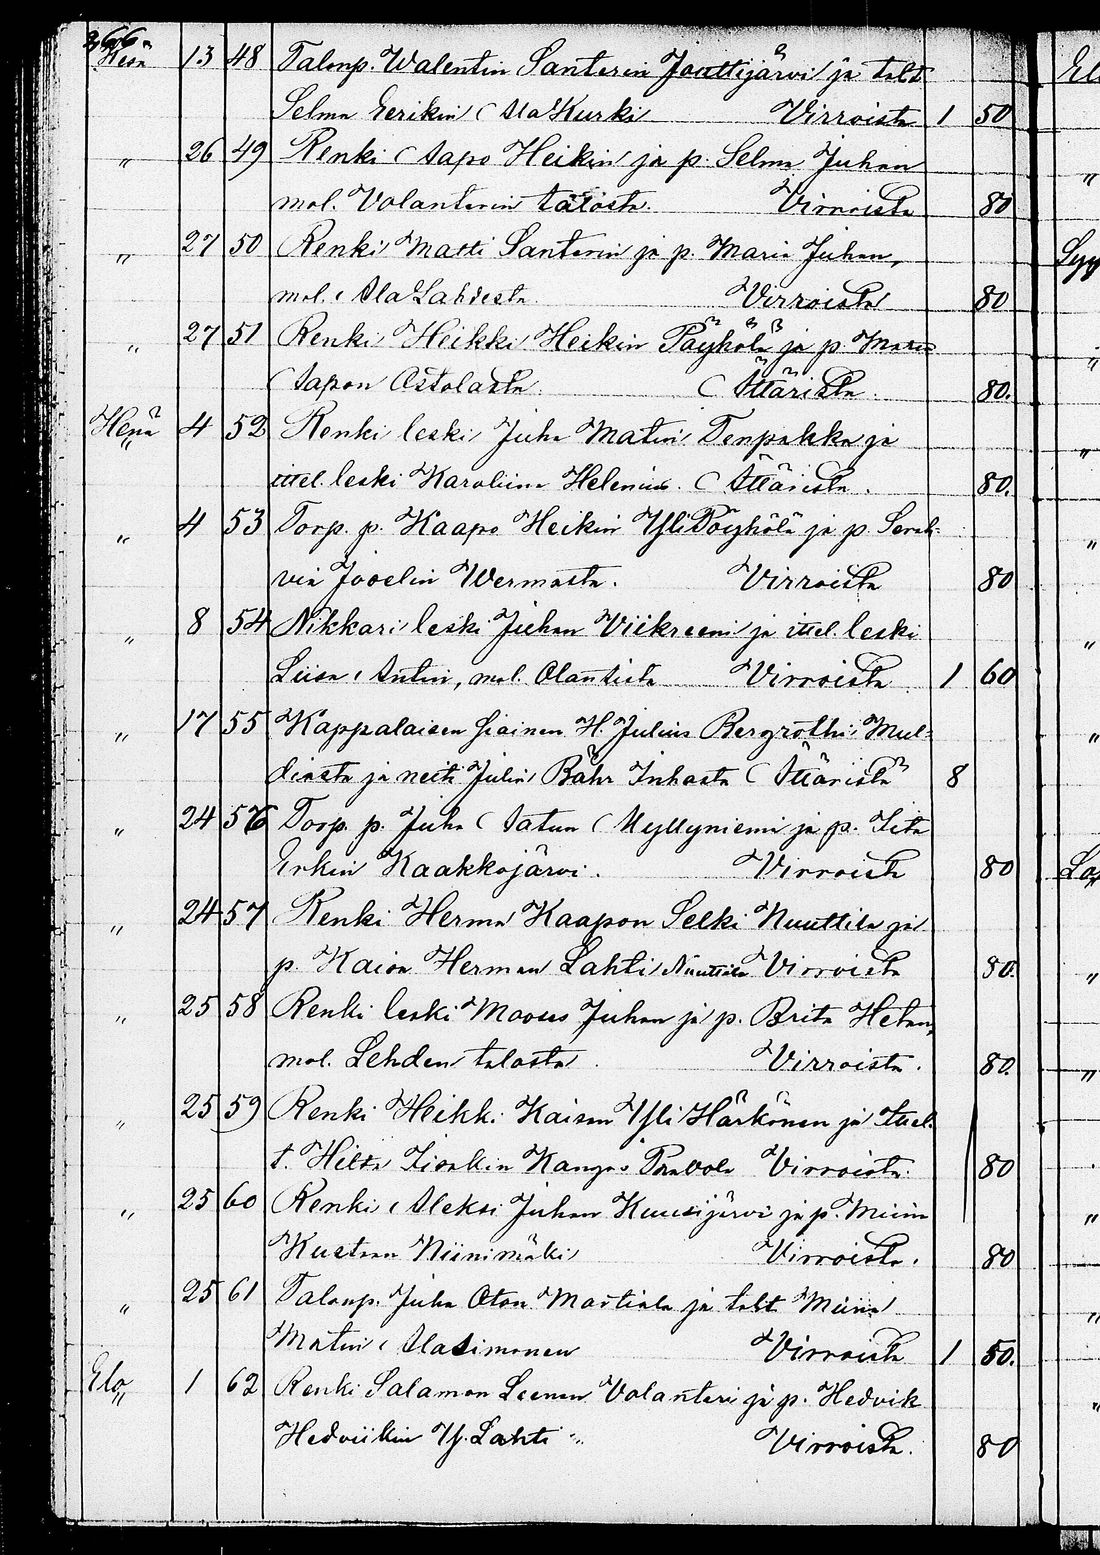 266.
Kesä 13 48 Talonp. Walentin Santerin Jouttijärvi ja talt
Selma Eerikin Ala Kurki Virroista 1 50
" 26 49 Renki Aapo Heikin ja p. Selma Juhan
mol. Volanterin talosta. Virroista 80
" 27 50 Renki Matti Santerin ja p. Maria Juhan,
mol. Ala Lahdesta Virroista 80
" 27 51 Renki Heikki Heikin Päyhölä ja p. Maria
Aapon Ostolasta. Ätäristä. 80.
Henä 4 52 Renki leski Juha Matin Tenpakka ja
ittel. leski Karoliina Helenius. Ätäristä. 80.
" 4 53 Torp. p. Kaapo Heikin Yli Pöyhölä ja p. Sera-
via Jooselin Wermasta. Virroista 80
" 8 54 Nikkari leski Juhan Viikreeni ja ittel. leski
Liisa Antin, mol. Olantista Virroista 1 60
" 17 55 Kappalaisen siainen H. Julius Bergroth Mul-
diasta ja neiti Julia Bähr Inhasta Ätäristä 8
" 24 56 Torp. p. Juha Aatun Myllyniemi ja p. Iita
Erkin Kaakkojärvi. Virroista 80
" 24 57 Renki Herma Kaapon Selki Nuuttila ja
p. Kaisa Herman Lahti Nuuttila Virroista 80.
" 25 58 Renki leski Mooses Juhan ja p. Brita Hetan,
mol. Lehden talosta Virroista. 80.
" 25 59 Renki Heikki Kaisan Yli Härkönen ja ittel.
t. Hilta Iisakin Kangas Virroista. 80
" 25 60 Renki Aleksi Juhan Kuusijärvi ja p. Miina
Kustaan Niinimäki Virroista. 80
" 25 61 Talonp. Juha Oton Martiala ja talt Miina
Matin Alasimonen Virroista 1 50.
Elo 1 62 Renki Salamon Leenan Volanteri ja p. Hedvik
Hedviikin Y. Lahti Virroista. 80